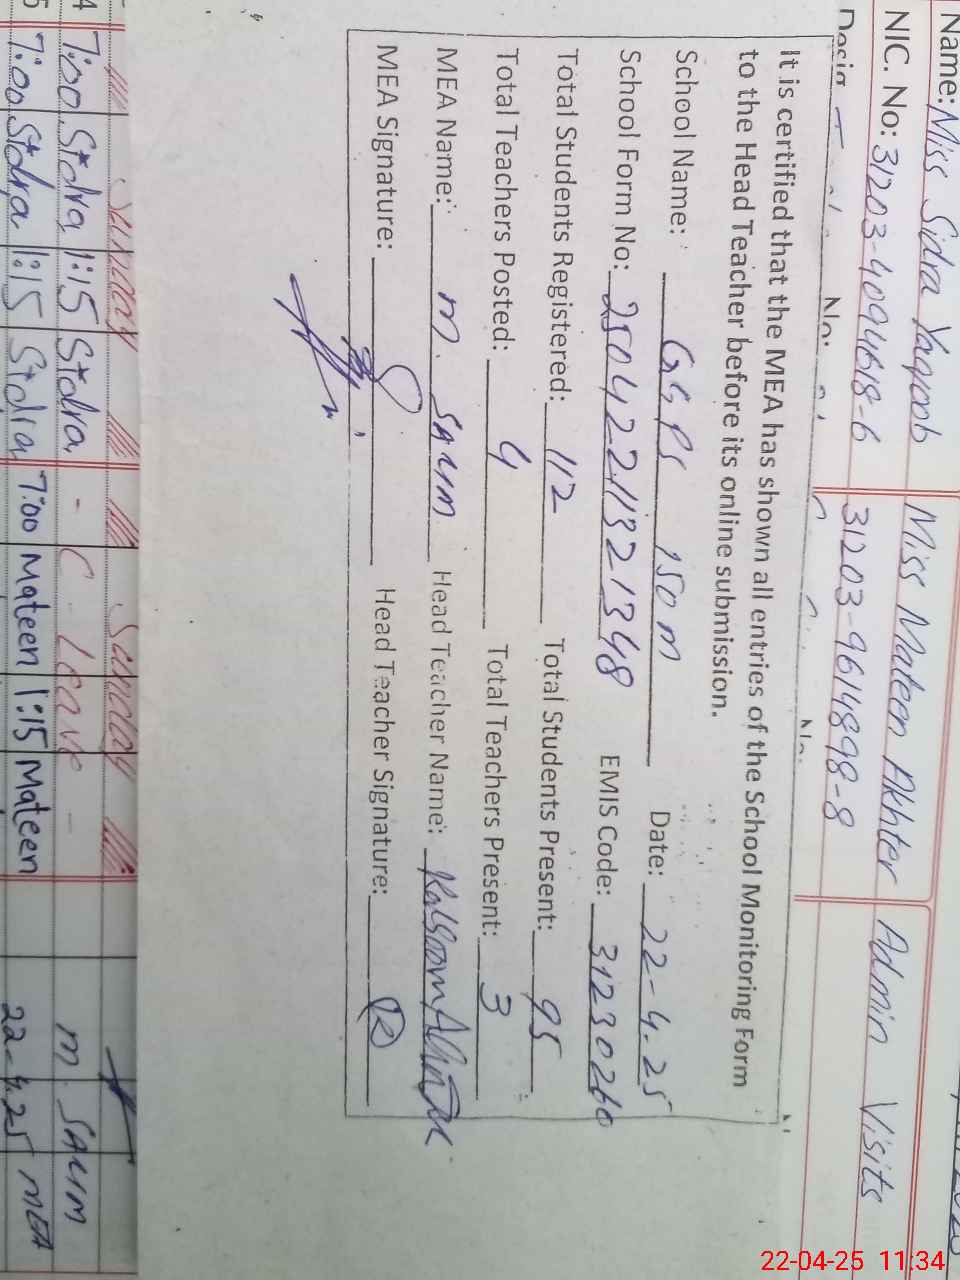 Name: Miss Sidra Yaqoob Miss Mateen Akhter Admin Visits
NIC. No: 31203-4094618-6 31203-9614898-8
It is certified that the MEA has shown all entries of the School Monitoring Form
to the Head Teacher before its online submission.
School Name: GGPS 150 m Date: 22-4.25
School Form No: 25042211321348 EMIS Code: 31230260
Total Students Registered: 112 Total Students Present: 95
Total Teachers Posted: 4 Total Teachers Present: 3
MEA Name: M. SALIM Head Teacher Name: Kalsoom Akhtar
MEA Signature: Head Teacher Signature:
Sunday Sunday
4 7:00 Sidra 1:15 Sidra - C - Leave - M. SALIM
5 7:00 Sidra 1:15 Sidra 7:00 Mateen 1:15 Mateen 22-4.25 MEA
22-04-25 11:34